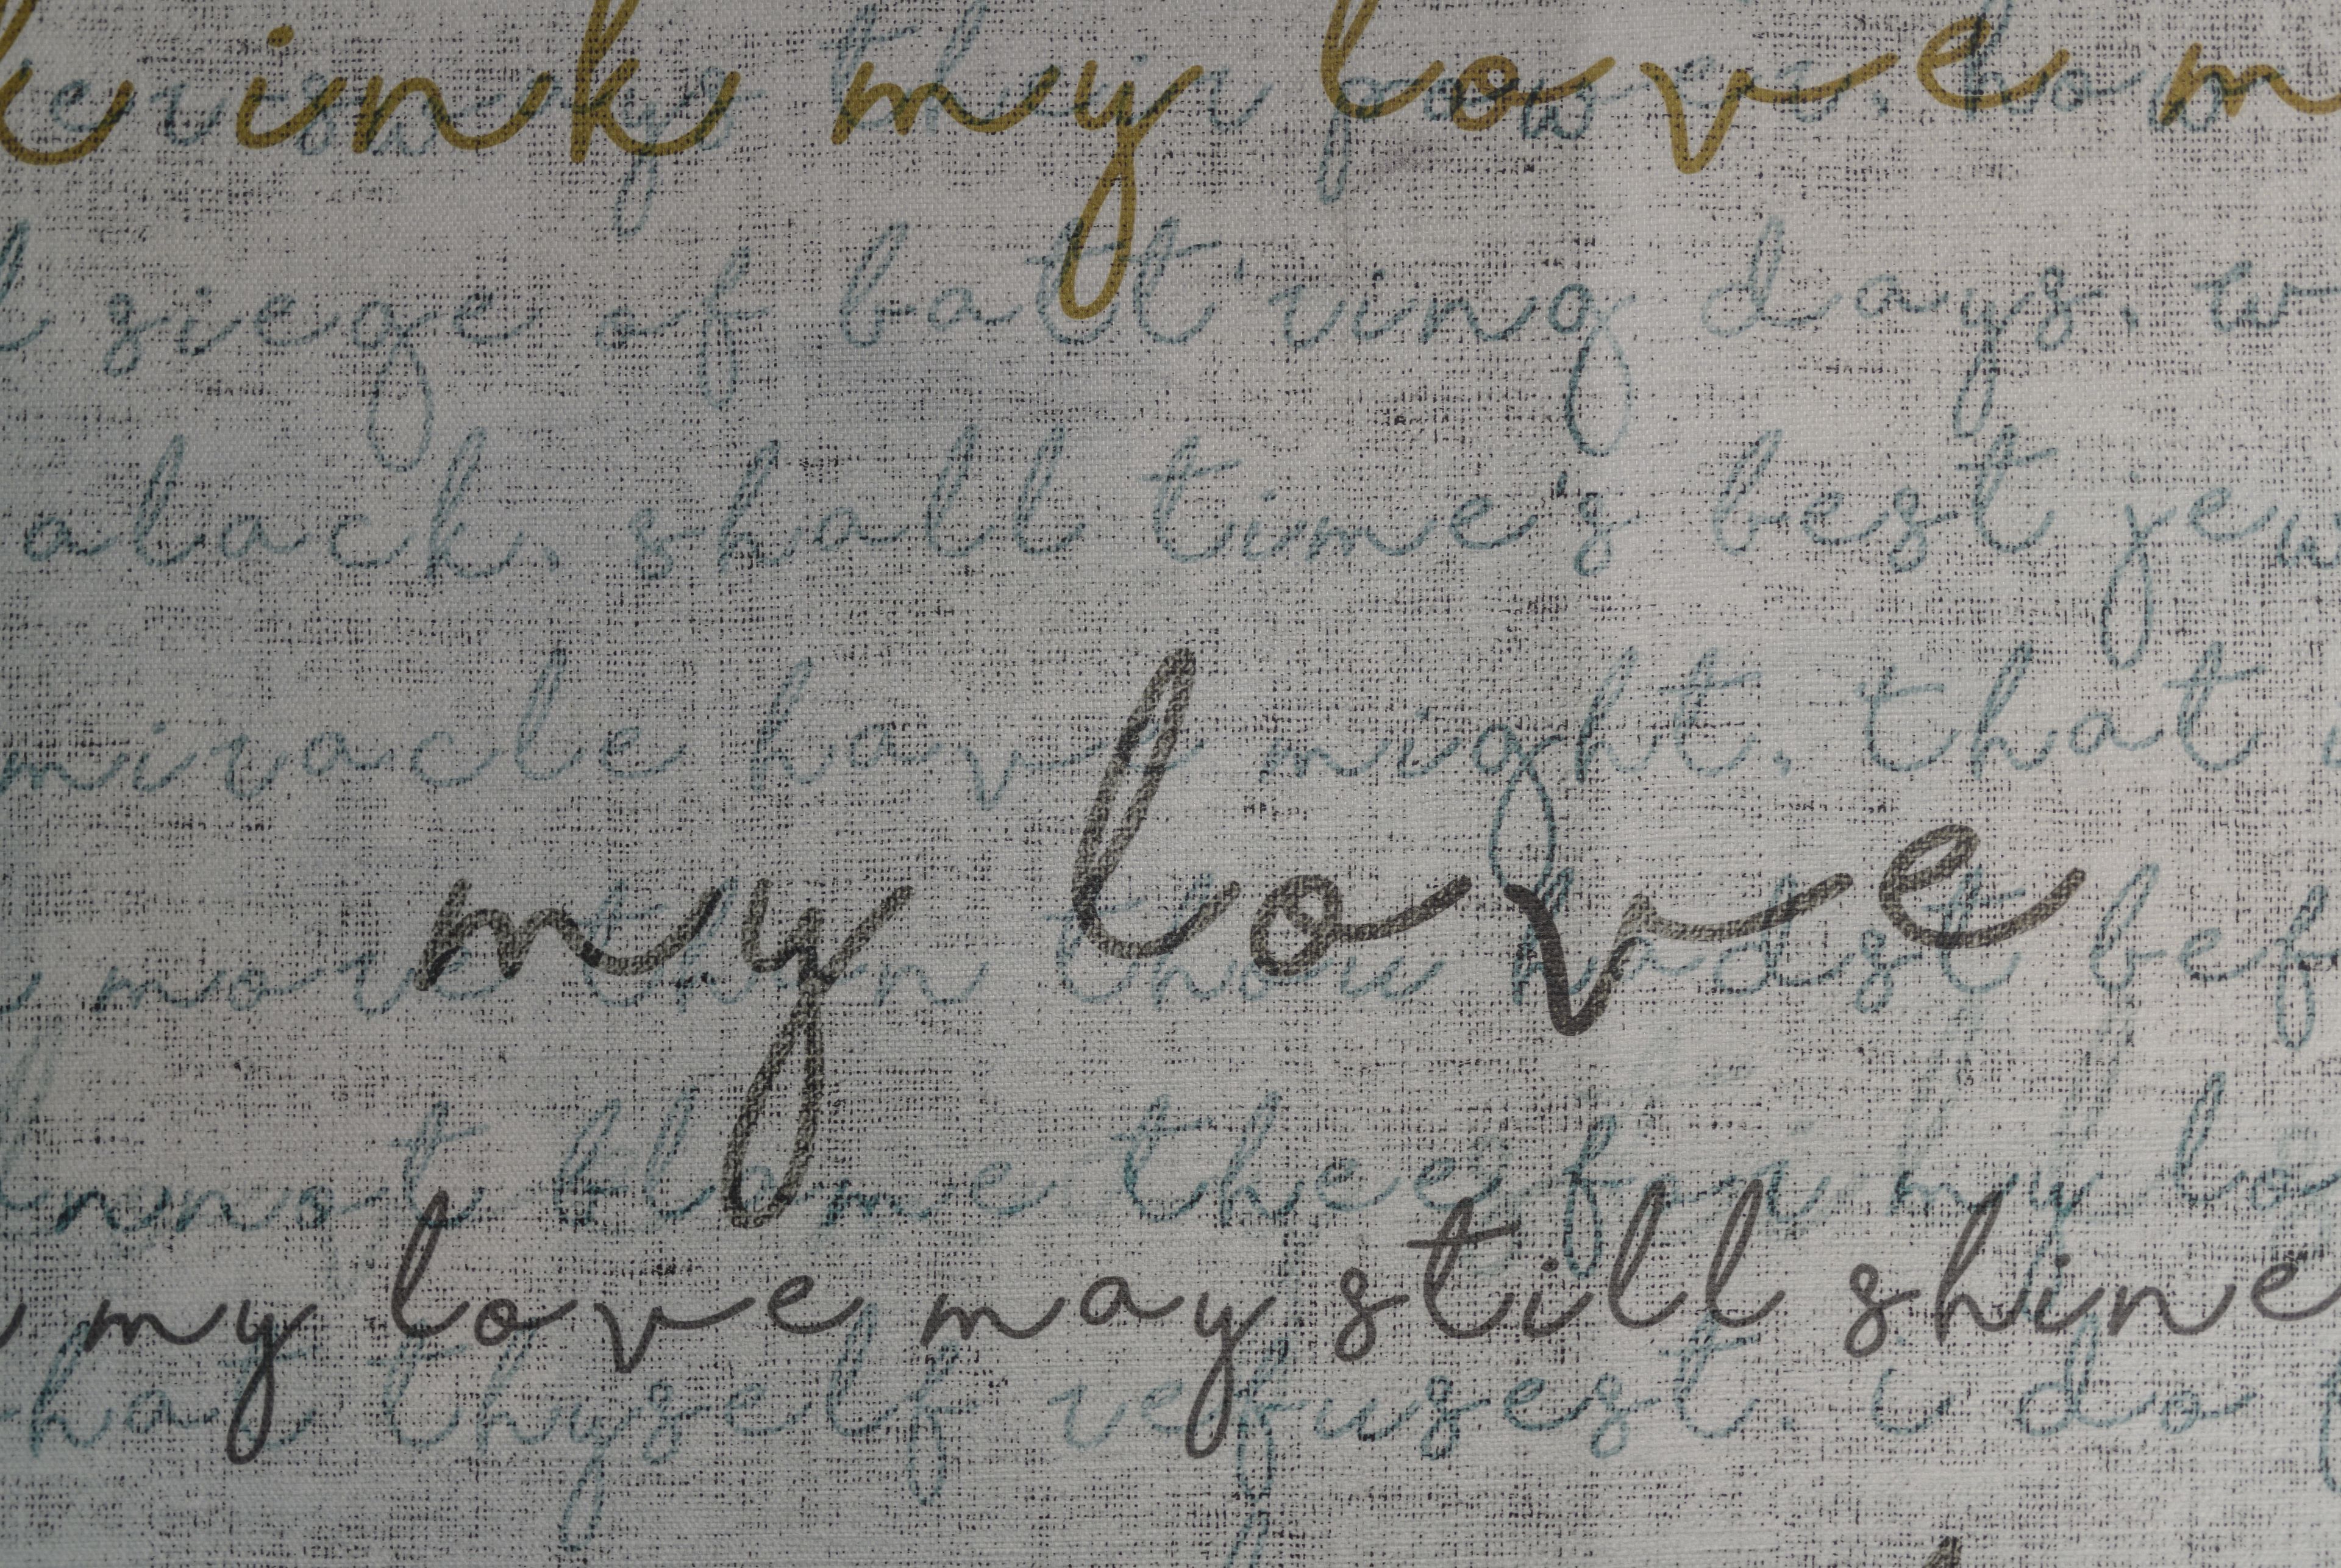 k ink my love m
siege of batt'ring days, w
alack, shall time's best jew
miracle have might, that
my love
more than thou hadst bef
cannot blame thee for my lo
my love may still shine
that thyself refusest. i do